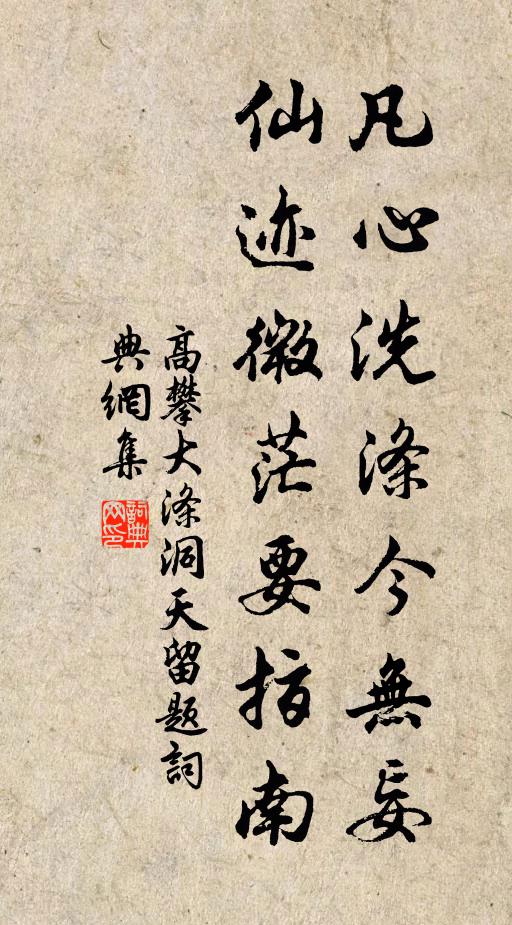 凡心洗涤今無妄
仙迹微茫要指南
高攀大涤洞天留题詞
典網集
詞典網印